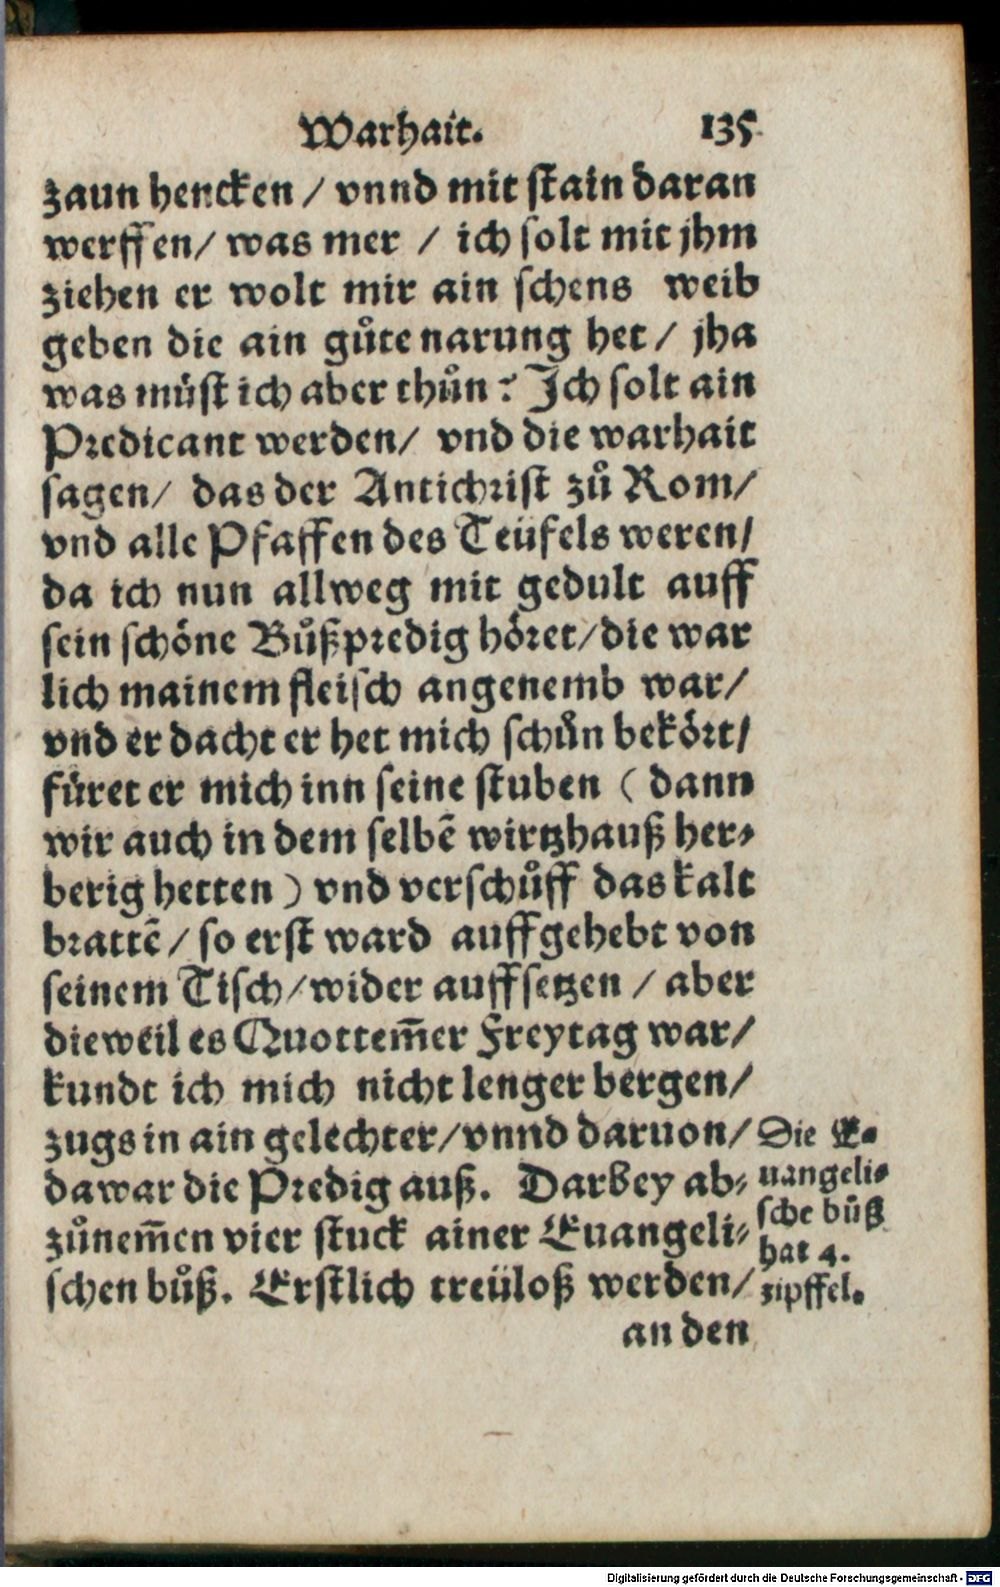 Warhait. 135
zaun hencken / vnnd mit stain daran
werffen / was mer / ich solt mit jhm
ziehen er wolt mir ain schens weib
geben die ain gůte narung het / jha
was můst ich aber thůn? Ich solt ain
Predicant werden / vnd die warhait
sagen / das der Antichrist zů Rom /
vnd alle Pfaffen des Teüfels weren /
da ich nun allweg mit gedult auff
sein schöne Bůßpredig höret / die war
lich mainem fleisch angenemb war /
vnd er dacht er het mich schůn bekört /
füret er mich inn seine stuben ( dann
wir auch in dem selbē wirtzhauß her-
berig hetten ) vnd verschůff das kalt
brattē / so erst ward auffgehebt von
seinem Tisch / wider auffsetzen / aber
dieweil es Quottem̄er Freytag war /
kundt ich mich nicht lenger bergen /
zugs in ain gelechter / vnnd daruon /
da war die Predig auß. Darbey ab-
zůnem̄en vier stuck ainer Euangeli-
schen bůß. Erstlich treüloß werden /
an den
Die E-
uangeli-
sche bůß
hat 4.
zipffel.
Digitalisierung gefördert durch die Deutsche Forschungsgemeinschaft - DFG